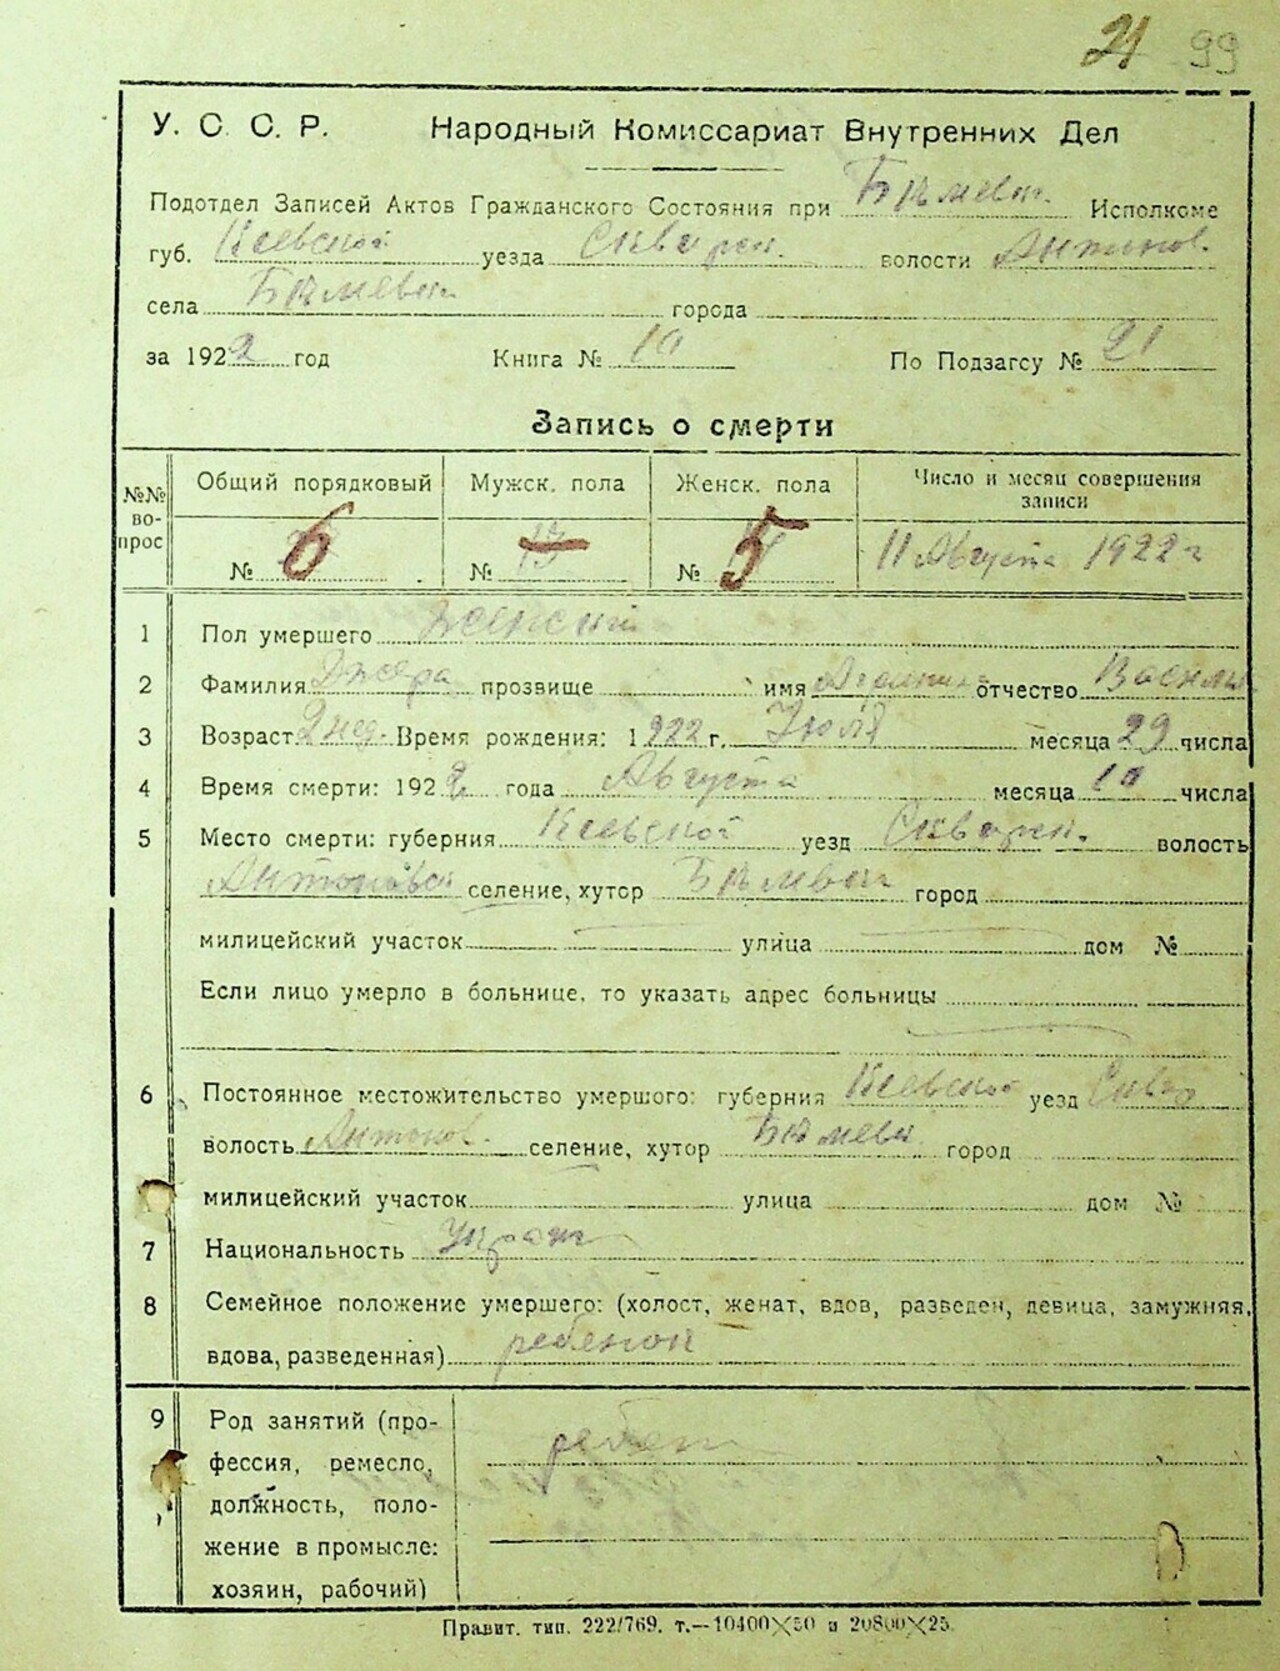 21 99
У. С. С. Р. Народный Комиссариат Внутренних Дел
Подотдел Записей Актов Гражданского Состояния при Исполкоме
губ. Киевской уезда Сквирск. волости Антонов.
села города
за 1922 год Книга № 10 По Подзагсу № 21
Запись о смерти
№№ во-прос Общий порядковый Мужск. пола Женск. пола Число и месяц совершения записи
№ 6 № № 5 11 Августа 1922 г
1 Пол умершего женский
2 Фамилия прозвище имя отчество
3 Возраст 2 нед. Время рождения: 1922 г. Июля месяца 29 числа
4 Время смерти: 1922 года Августа месяца 10 числа
5 Место смерти: губерния Киевской уезд Сквирск. волость
Антоновск селение, хутор город
милицейский участок улица дом №
Если лицо умерло в больнице, то указать адрес больницы
6 Постоянное местожительство умершего: губерния Киевской уезд Сквир
волость Антонов. селение, хутор город
милицейский участок улица дом №
7 Национальность
8 Семейное положение умершего: (холост, женат, вдов, разведен, девица, замужняя,
вдова, разведенная) ребенок
9 Род занятий (про-
фессия, ремесло,
должность, поло-
жение в промысле:
хозяин, рабочий)
Правит. тип. 222/769. т.—10400×50 и 20800×25.